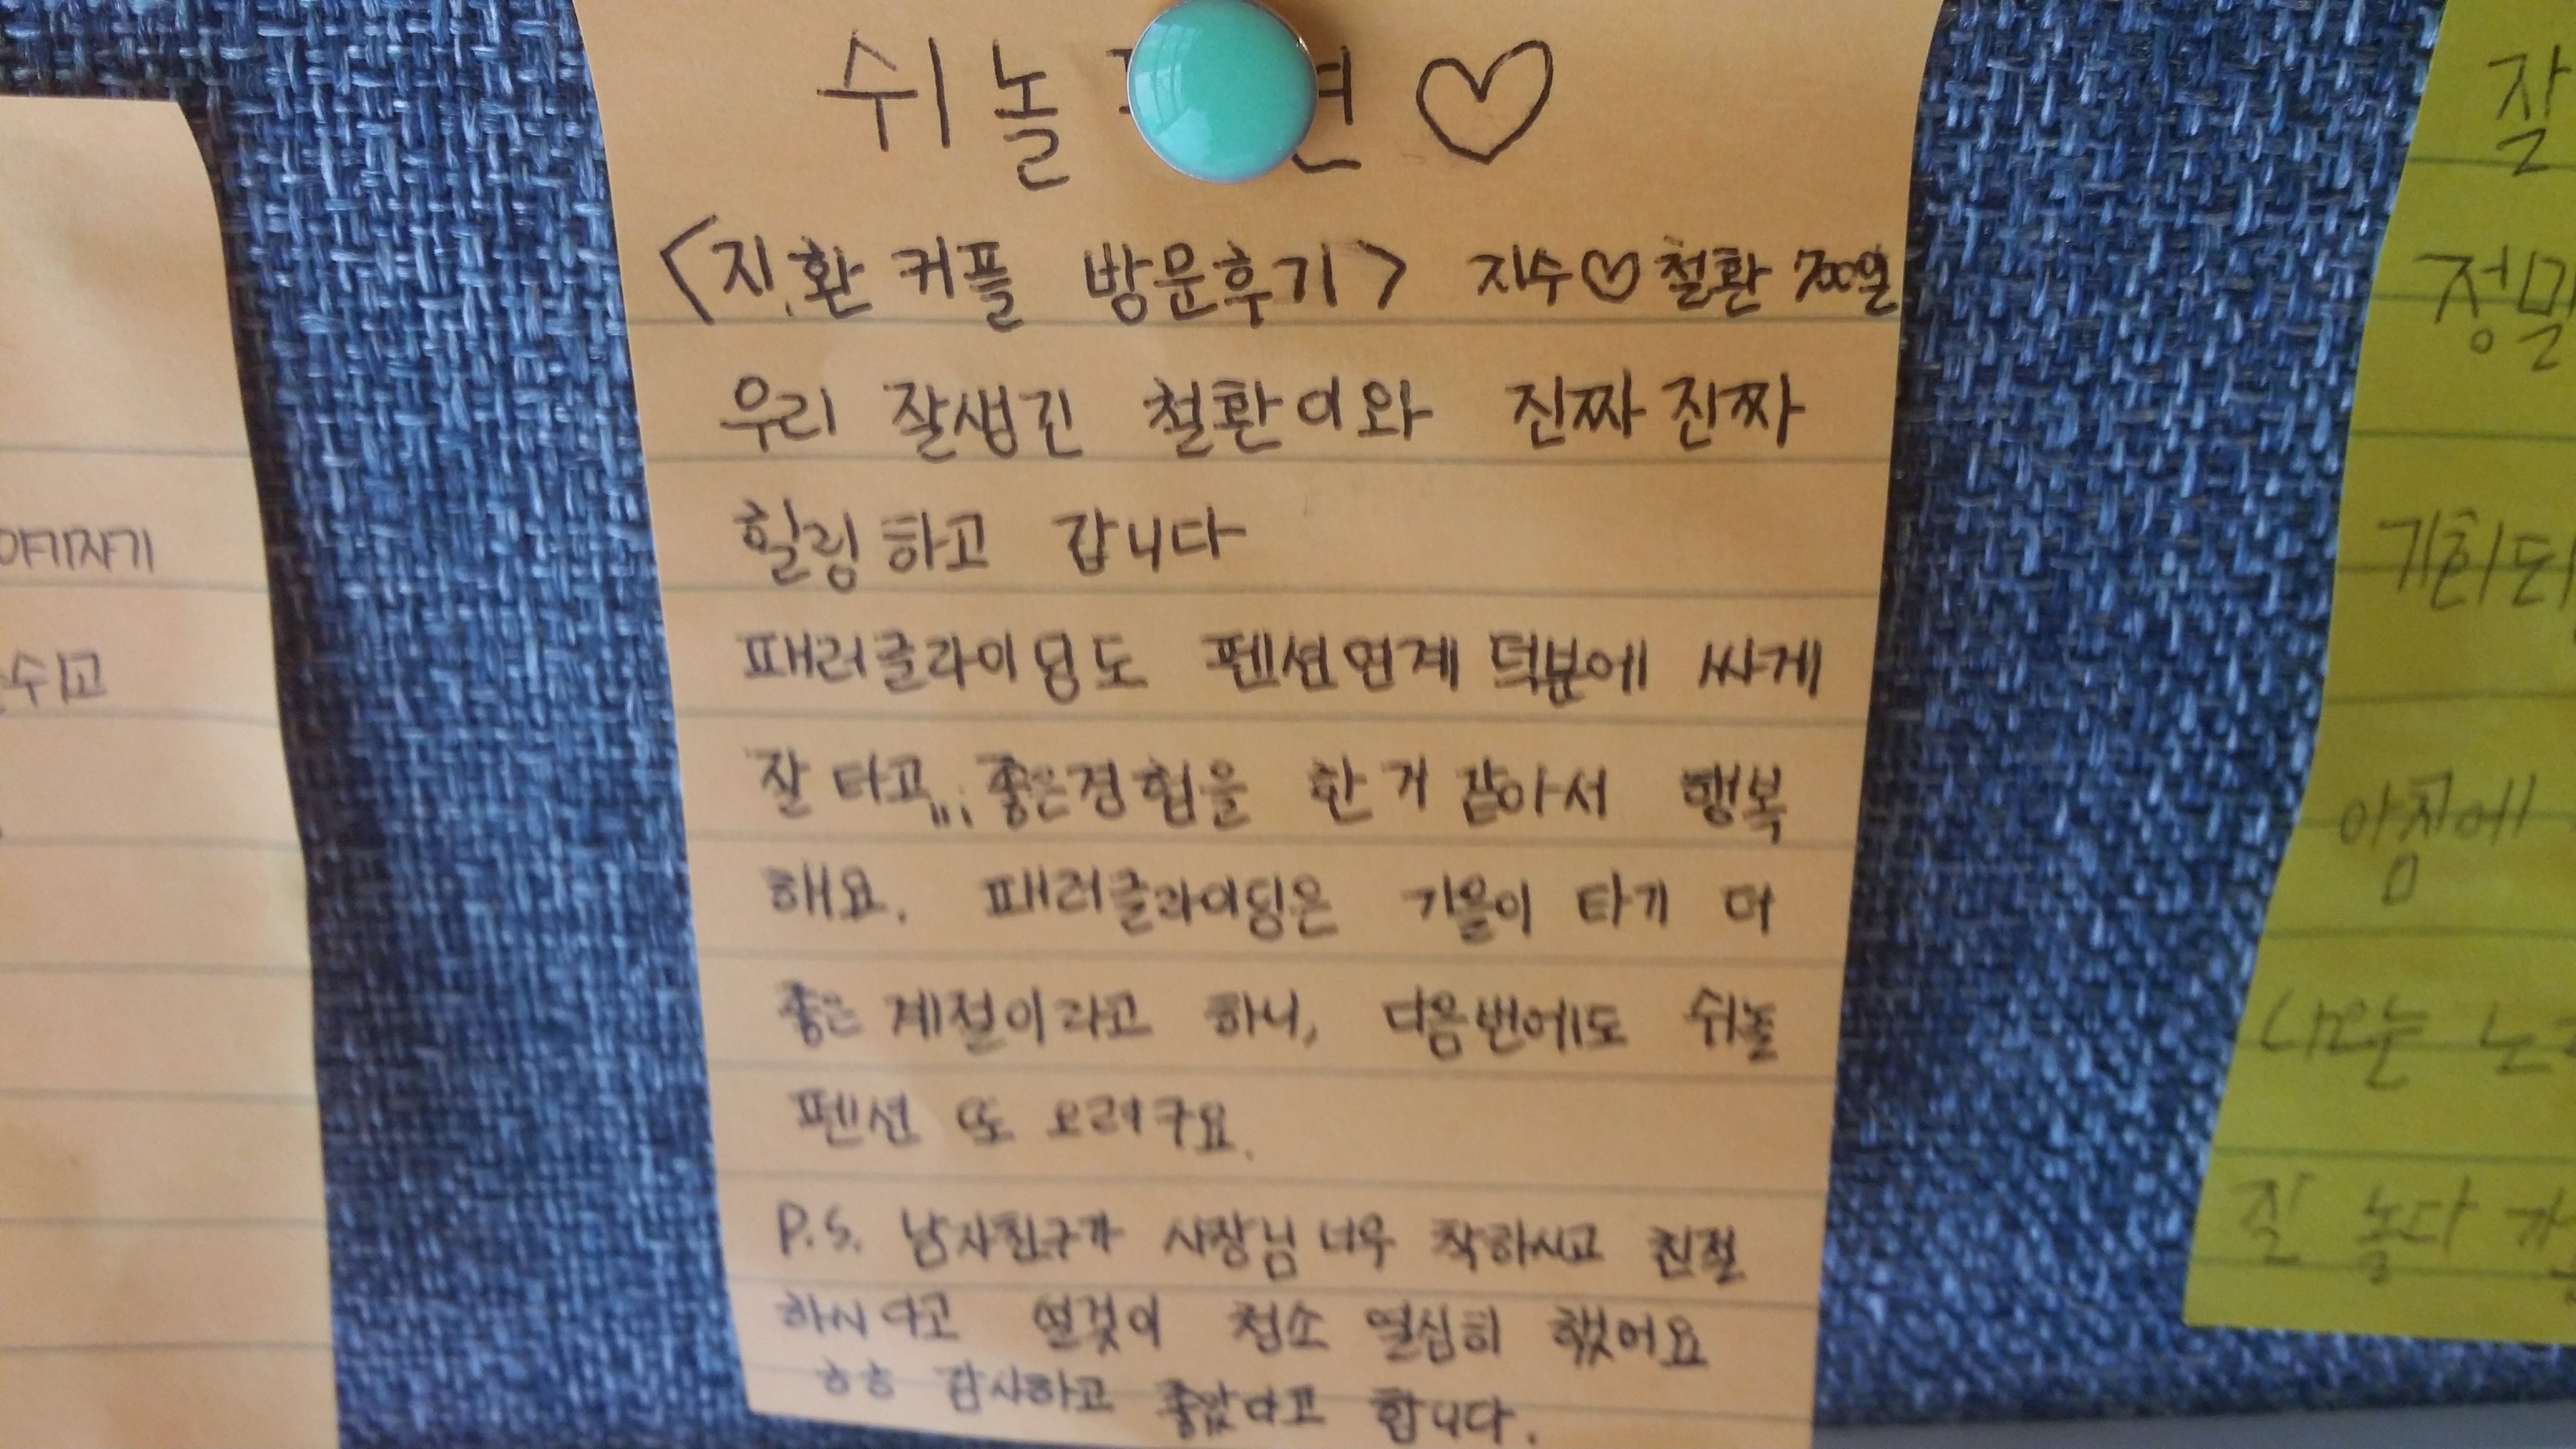 쉬놀 ♡
<지.환 커플 방문후기> 지수♡철환 700일
우리 잘생긴 철환이와 진짜진짜
힐링하고 갑니다
패러글라이딩도 펜션연계 덕분에 싸게
잘 타고,,, 좋은경험을 한거 같아서 행복
해요. 패러글라이딩은 가을이 타기 더
좋은 계절이라고 하니, 다음번에도 쉬놀
펜션 또 오려구요.
P.S. 남자친구가 사장님 너무 착하시고 친절
하시다고 청소 열심히 했어요
ㅎㅎ 감사하고 좋았다고 합니다.
야기자기
쉬고
잘
정말
기회되
아침에
나오는
잘 놀다